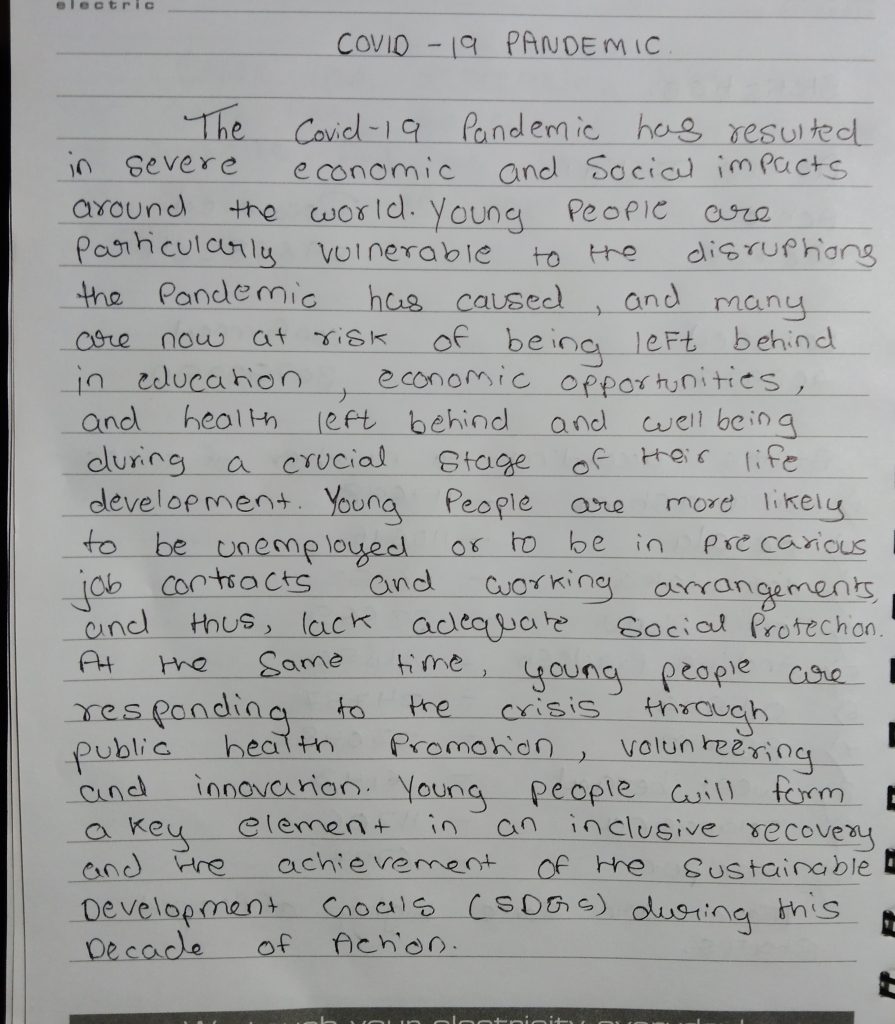 electric
COVID - 19 PANDEMIC.
The Covid-19 Pandemic has resulted
in severe economic and Social impacts
around the world. Young People are
Particularly vulnerable to the disruptions
the Pandemic has caused, and many
are now at risk of being left behind
in education, economic opportunities,
and health left behind and well being
during a crucial stage of their life
development. Young People are more likely
to be unemployed or to be in precarious
job contracts and working arrangements,
and thus, lack adequate Social Protection.
At the same time, young people are
responding to the crisis through
public health Promotion, volunteering
and innovation. Young people will form
a key element in an inclusive recovery
and the achievement of the Sustainable
Development Goals (SDGs) during this
Decade of Action.
your electricity